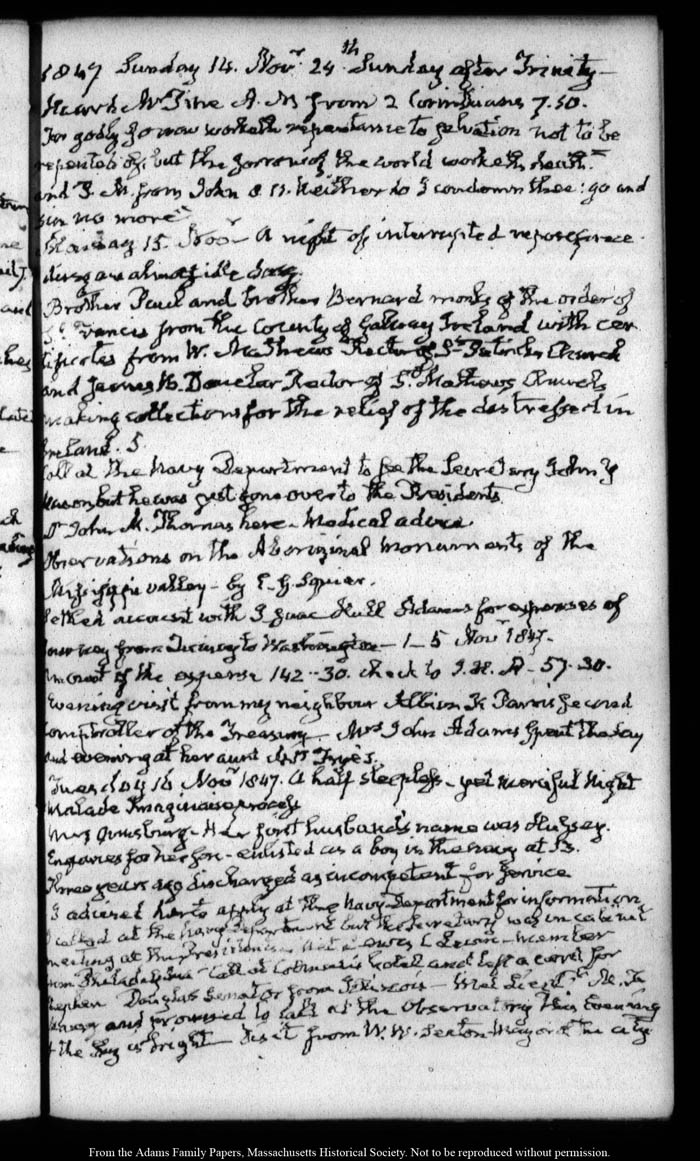 1847 Sunday 14. Novr. 24th Sunday after Trinity—
Heard Mr Pine A. M from 2 Corinthians 7.10.
For godly sorrow worketh repentance to salvation not to be
repented of, but the sorrow of the world worketh death.
and P. M. from John 8. 11. Neither do I condemn thee: go and
sin no more
Monday 15. Novr— A night of interrupted repose
an almost idle day.
Brother Paul and brother Bernard monks of the order of
St. Francis from the County of Galway Ireland with cer
tificates from W. Mathews Rector of St Patricks Church
and James B. Donelan Rector of St Mathews Church
making collections for the relief of the distressed in
Ireland. 5
Call at the Navy Department to see the Secretary John Y
Mason but he was just gone over to the Presidents
Dr John M. Thomas here— Medical advice
Observations on the Aboriginal Monuments of the
Mississippi valley— by E. G Squier.
Settled account with Isaac Hull Adams for expenses of
our way from Quincy to Washington— 1–5 Novr 1847—
Amount of the expense 142--30. check to I. H. A— 57. 30.
Evening visit from my neighbour Albion K Parris second
Comptroller of the Treasury— Mrs John Adams spent the day
and evening at her aunt Frye's.
Tuesday 16 Novr 1847. A half sleepless— yet merciful Night
Malade Imaginaire
Mrs Her first husband's name was Hussey.
Enquires for her son— enlisted as a boy in the navy at 13.
Three years ago discharged as incompetent for service
I advised her to apply at the Navy Department for information
I called at the Navy Department but the Secretary was in cabinet
meeting at the Presidents— Lewis C Levin— member
from Philadelphia— Call at Coleman's hotel and left a card for
Stephen Douglas Senator from Illinois— Met Lieut M. F.
Maury and promised to call at the Observatory this Evening
if the sky is bright— Visit from W. W. Seaton Mayor of the city
From the Adams Family Papers, Massachusetts Historical Society. Not to be reproduced without permission.